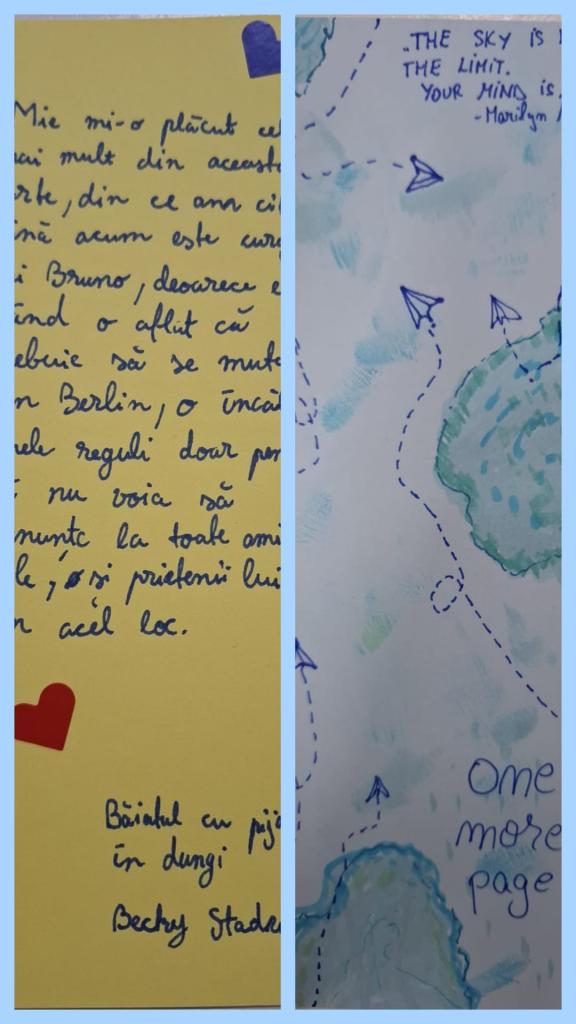 Mie mi-o plăcut ce
ai mult din aceast
rte, din ce am ci
înă acum este cur
i Bruno, deoarece e
ând o aflat că
ebuie să se mut
n Berlin, o încăl
ele reguli doar pen
nu voia să
nunțe la toate ami
le, și prietenii lui
n acel loc.
Băiatul cu pij
în dungi
Becky Stadn
„THE SKY IS
THE LIMIT.
YOUR MIND IS.
-Marilyn
One
more
page